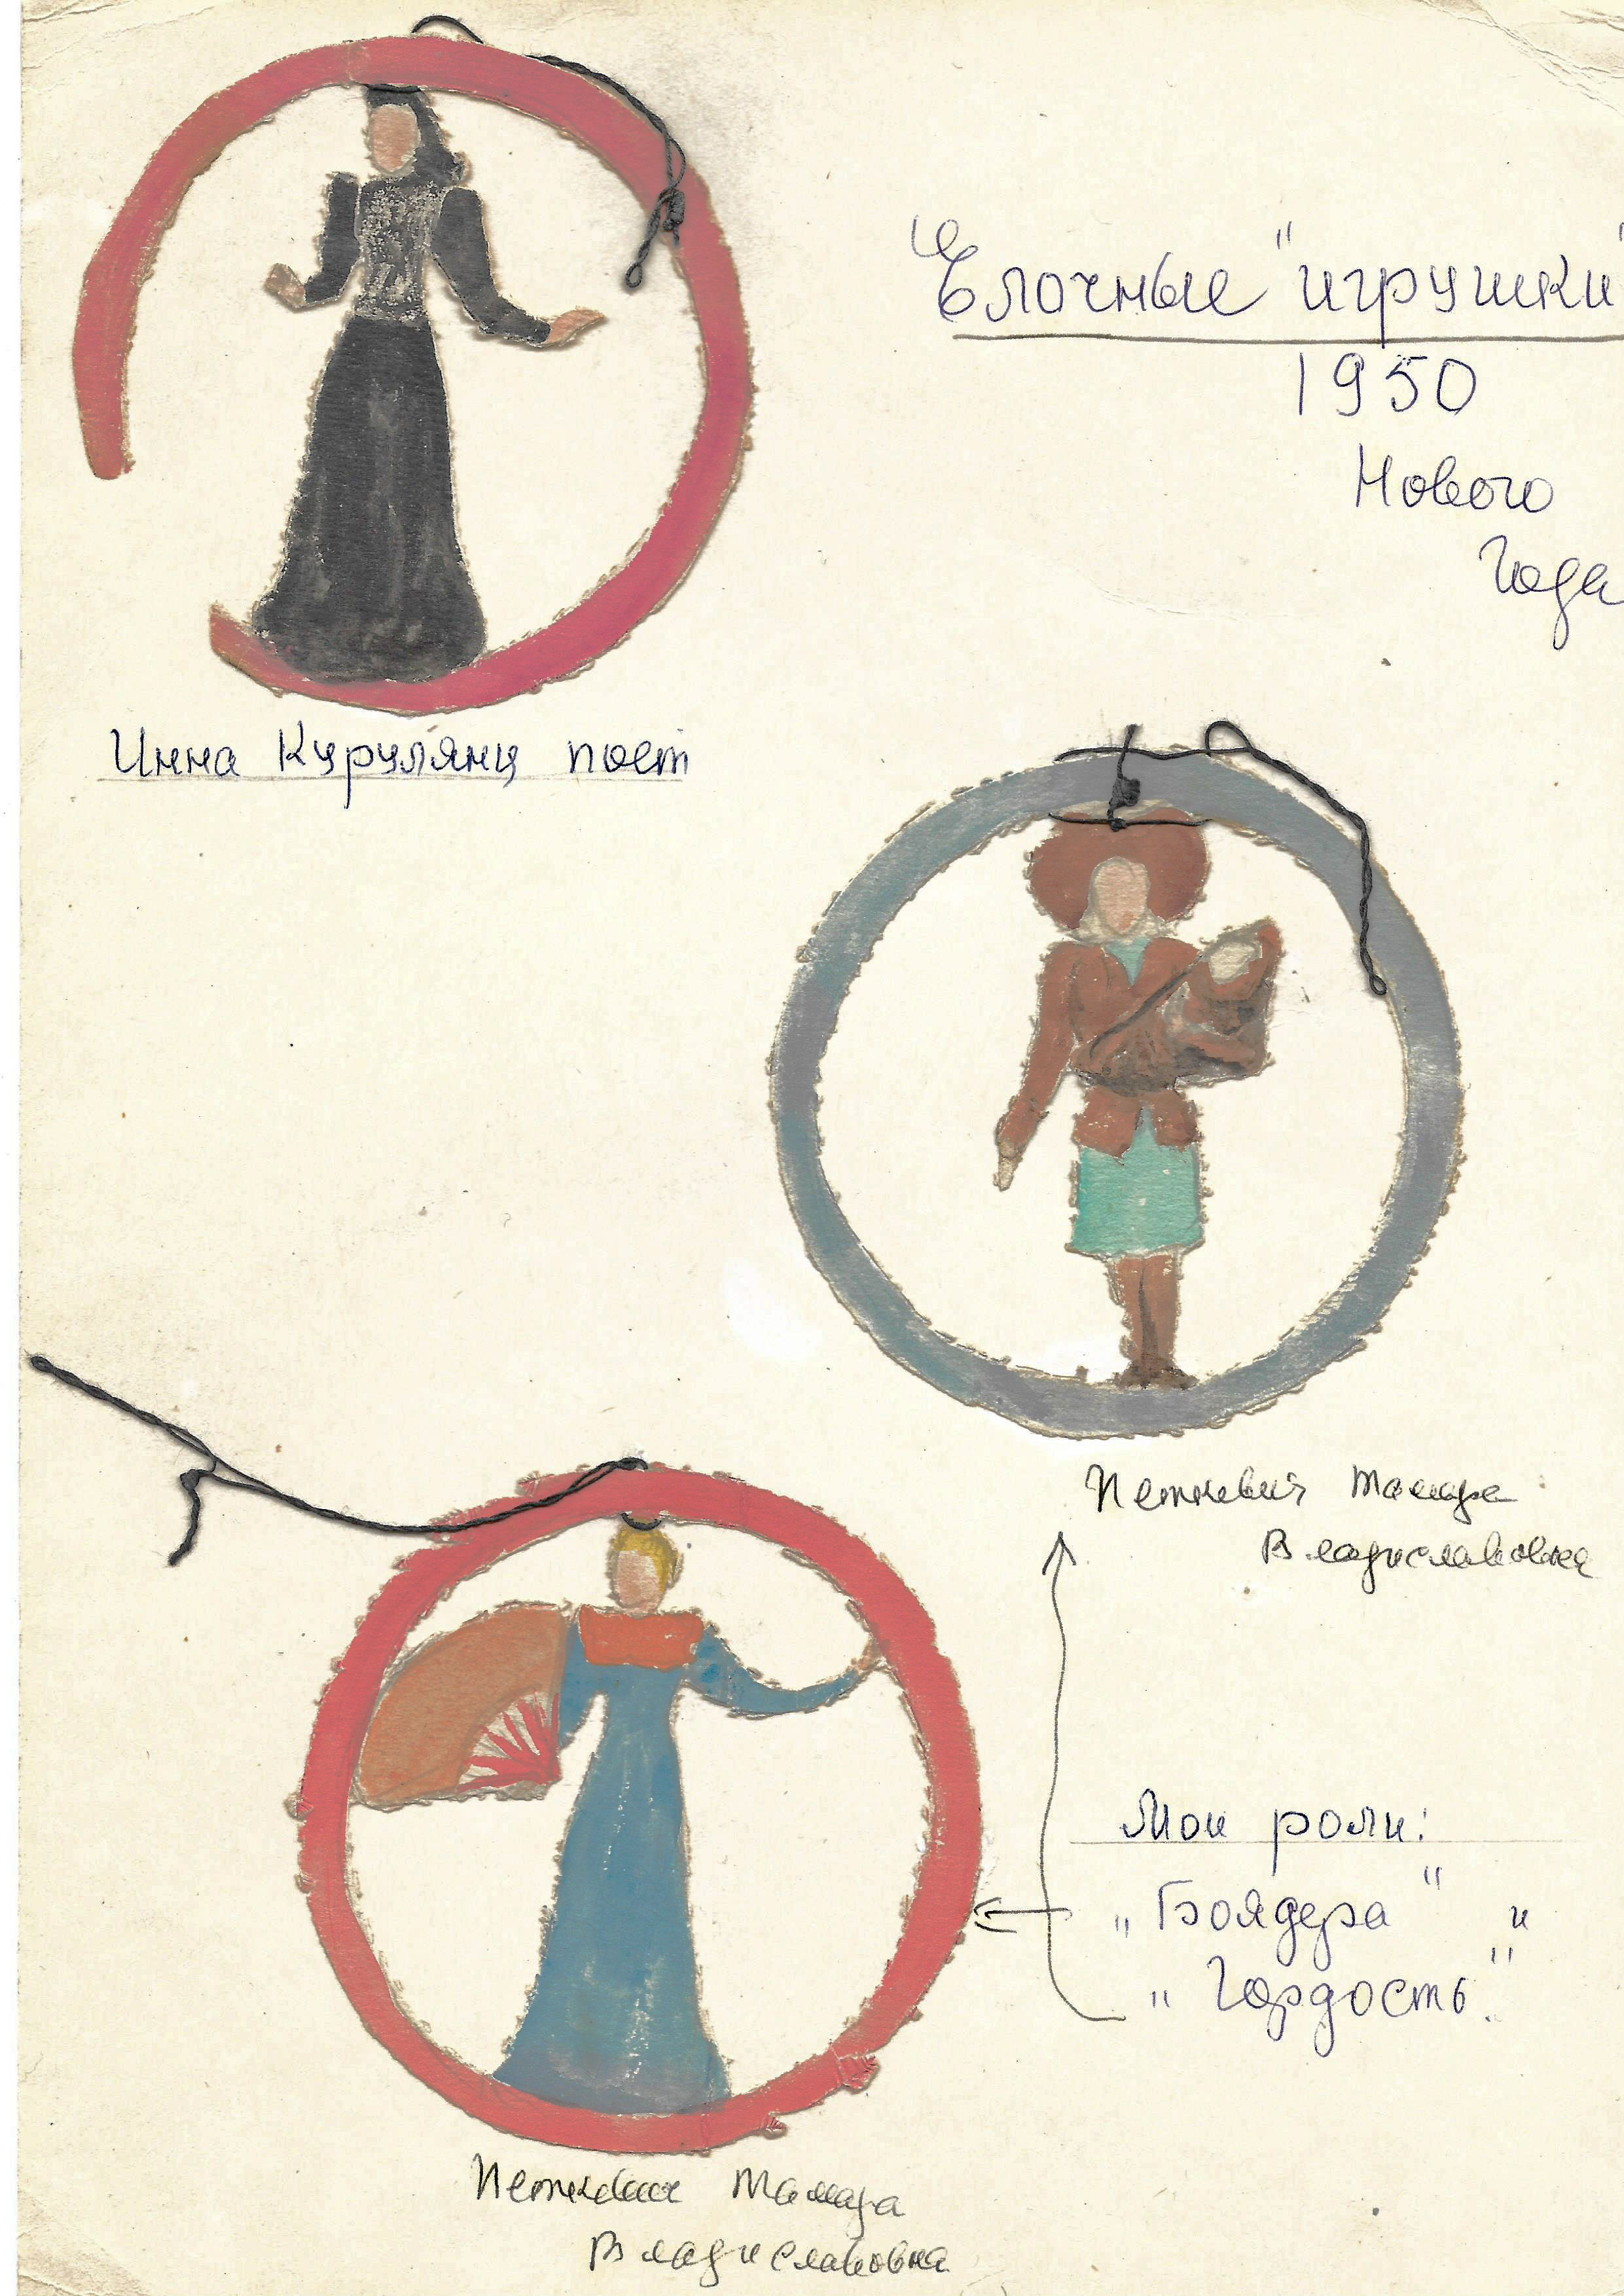 Елочные "игрушки"
1950
Нового
Года
Инна Курулянц поет
Петкевич Тамара
Владиславовна
Мои роли:
„Боядера" и
„Гордость".
Петкевич Тамара
Владиславовна